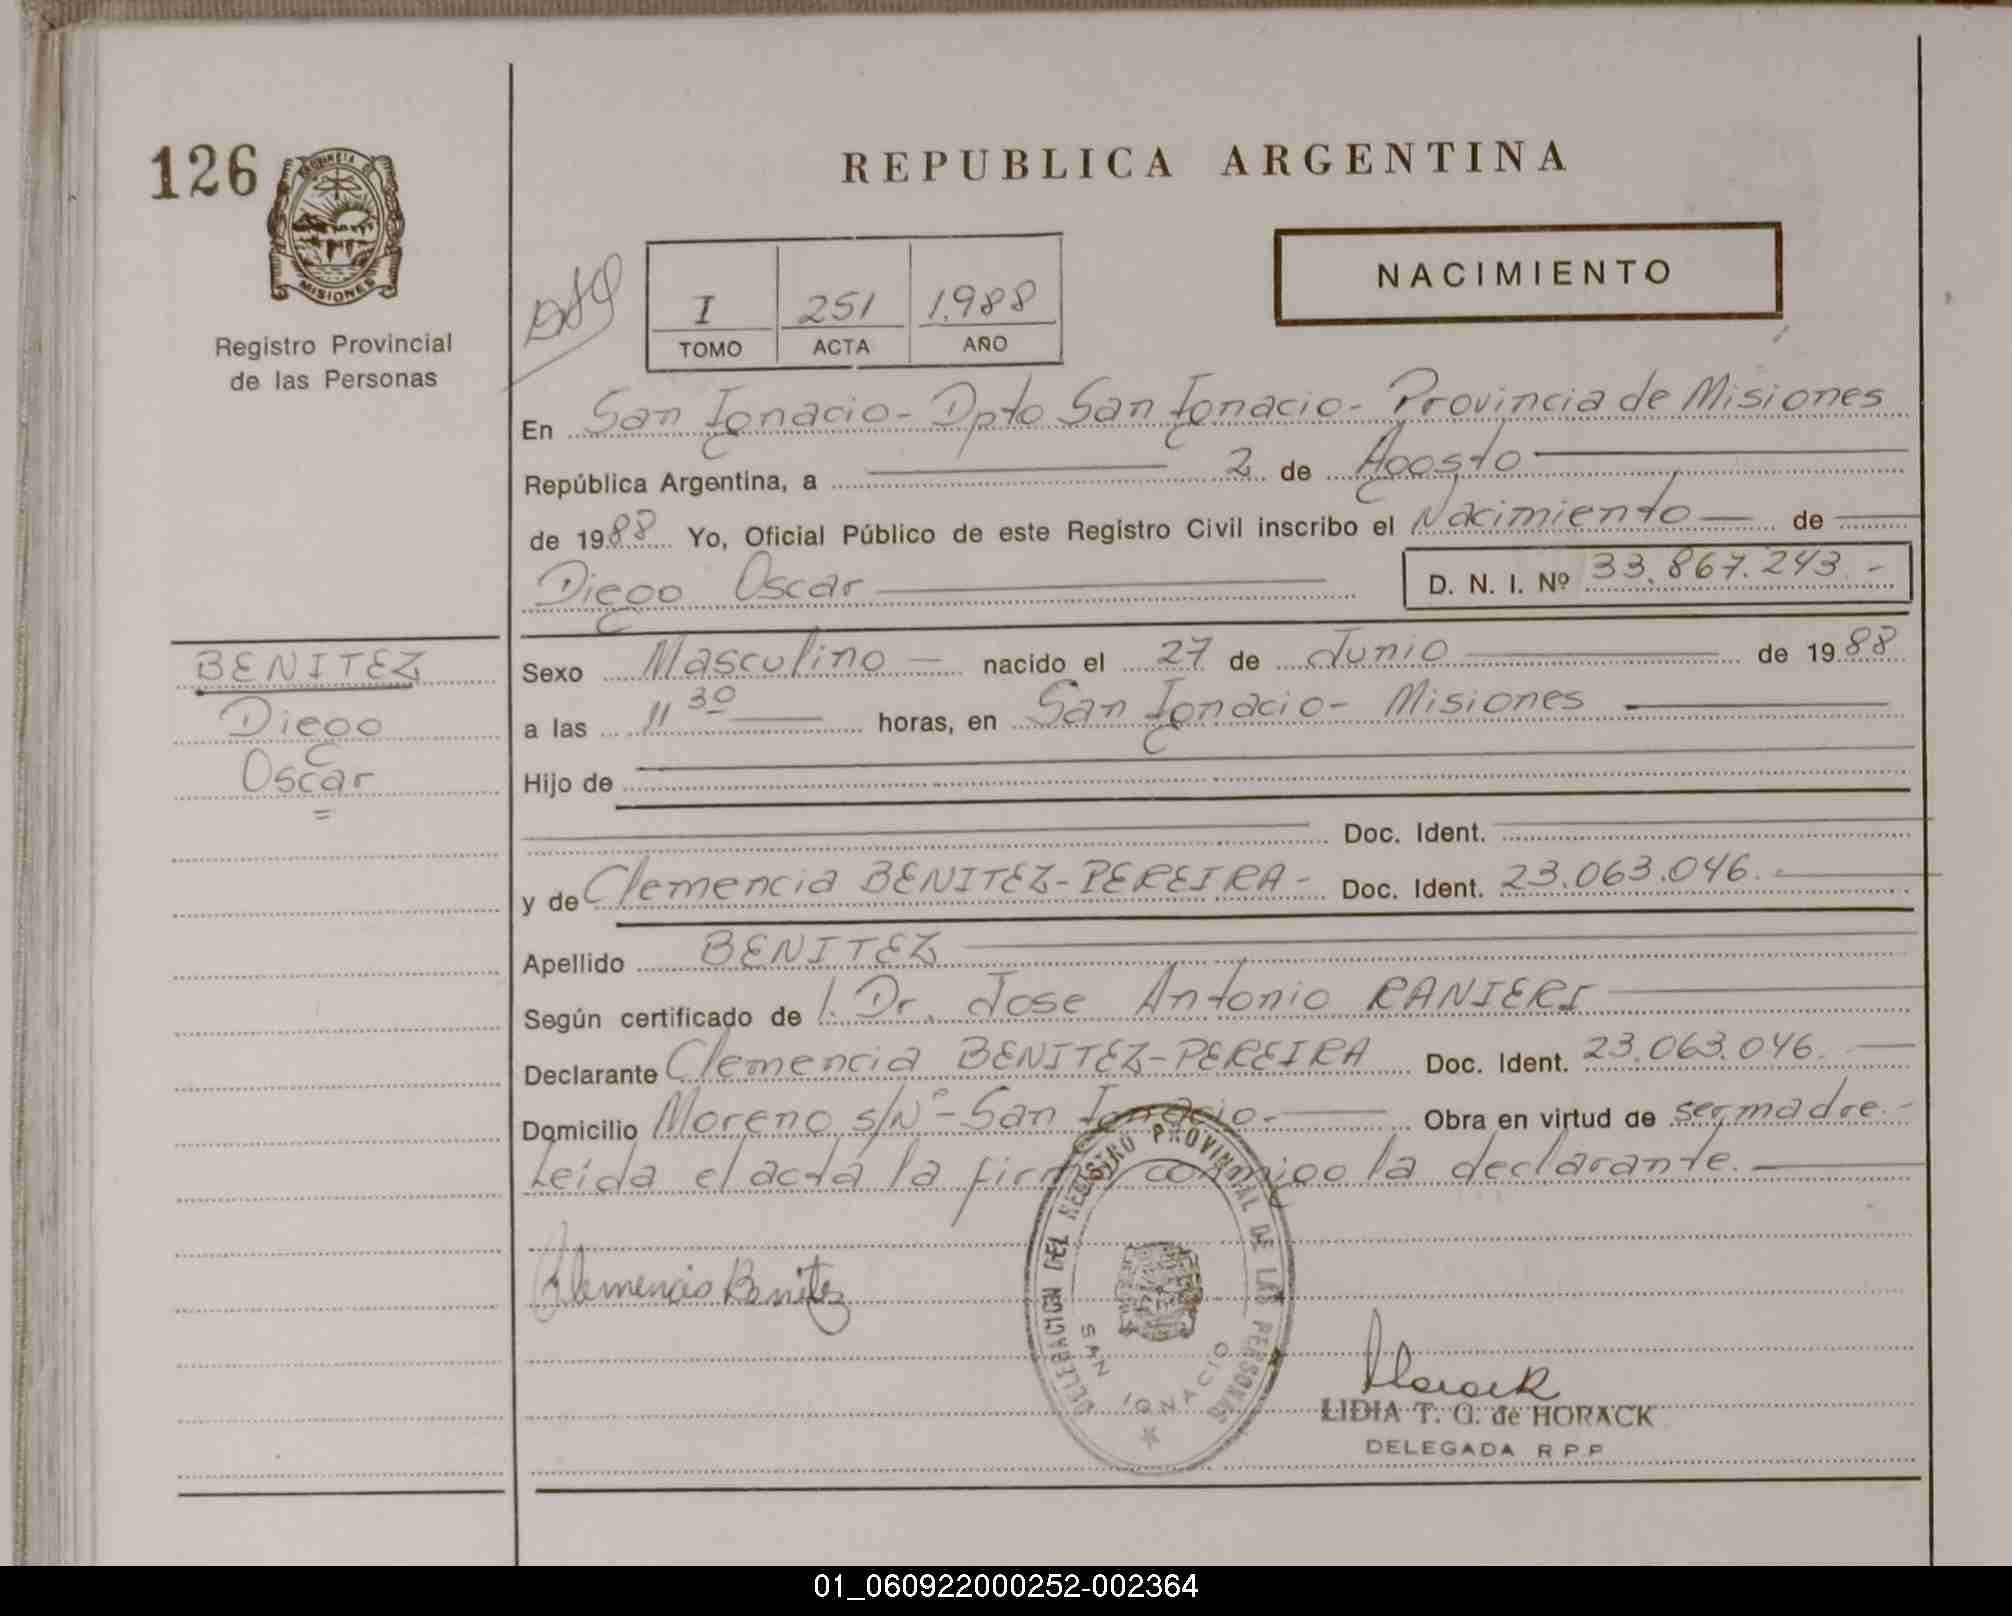 126
PROVINCIA DE
MISIONES
Registro Provincial
de las Personas
REPUBLICA ARGENTINA
NACIMIENTO
I 251 1.988
TOMO ACTA AÑO
En San Ignacio - Dpto San Ignacio - Provincia de Misiones
República Argentina, a 2 de Agosto
de 1988 Yo, Oficial Público de este Registro Civil inscribo el Nacimiento de
Diego Oscar D. N. I. Nº 33.867.243.-
BENITEZ
Diego
Oscar
Sexo Masculino nacido el 27 de Junio de 1988
a las 11 30 horas, en San Ignacio - Misiones
Hijo de
Doc. Ident.
y de Clemencia BENITEZ-PEREIRA- Doc. Ident. 23.063.046.
Apellido BENITEZ
Según certificado de l. Dr. Jose Antonio RANIERI
Declarante Clemencia BENITEZ-PEREIRA Doc. Ident. 23.063.046.
Domicilio Moreno s/Nº - San Ignacio.- Obra en virtud de ser madre.-
Leída el acta la firma conmigo la declarante.
Clemencia Benitez
DELEGACION DEL REGISTRO PROVINCIAL DE LAS PERSONAS
SAN IGNACIO
Horack
LIDIA T. G. de HORACK
DELEGADA R P P
01_060922000252-002364